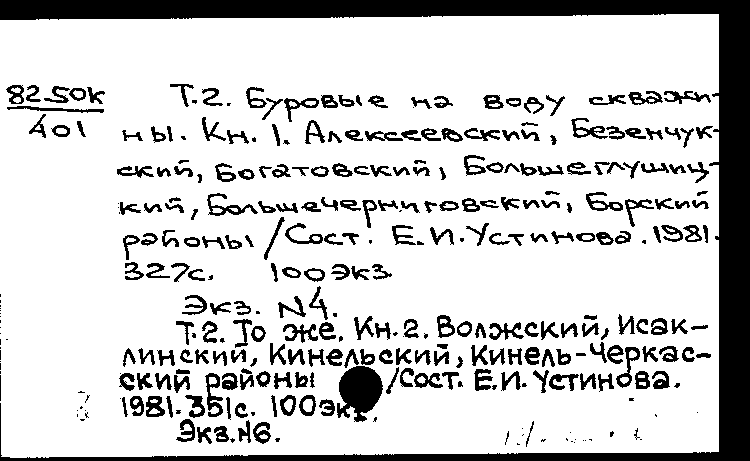 82-50к
401
Т.2. Буровые на воду скважи-
ны. Кн. 1. Алексеевский, Безенчук-
ский, Богатовский, Большеглушиц-
кий, Большечерниговский, Борский
районы / Сост. Е.И. Устинова. 1981.
327с. 100 экз.
Экз. N4.
Т.2. То же. Кн.2. Волжский, Исак-
линский, Кинельский, Кинель-Черкас-
ский районы /Сост. Е.И. Устинова.
1981. 351с. 100экз.
Экз.N6.